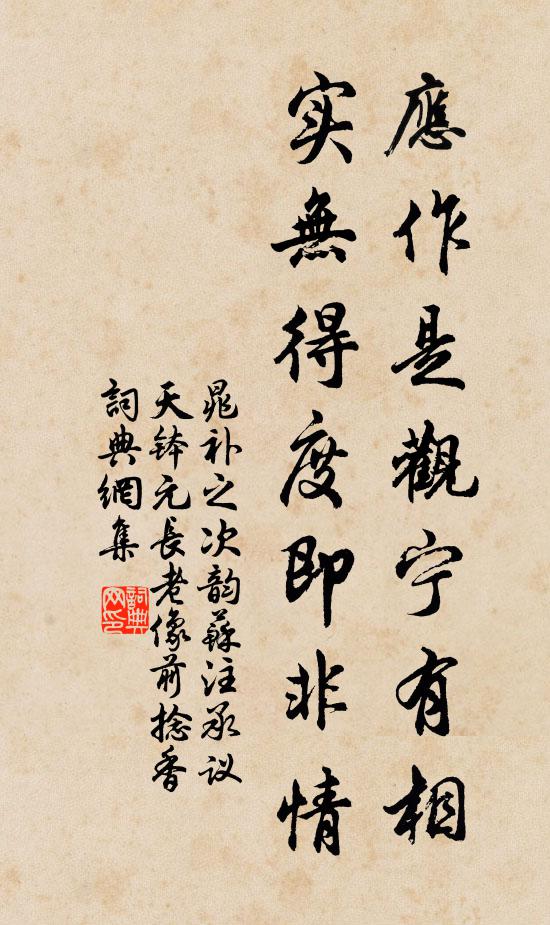 應作是觀宁有相
实無得度即非情
晁补之次韵蘇注承议
天钵元長老像前捻香
詞典網集
詞典网印